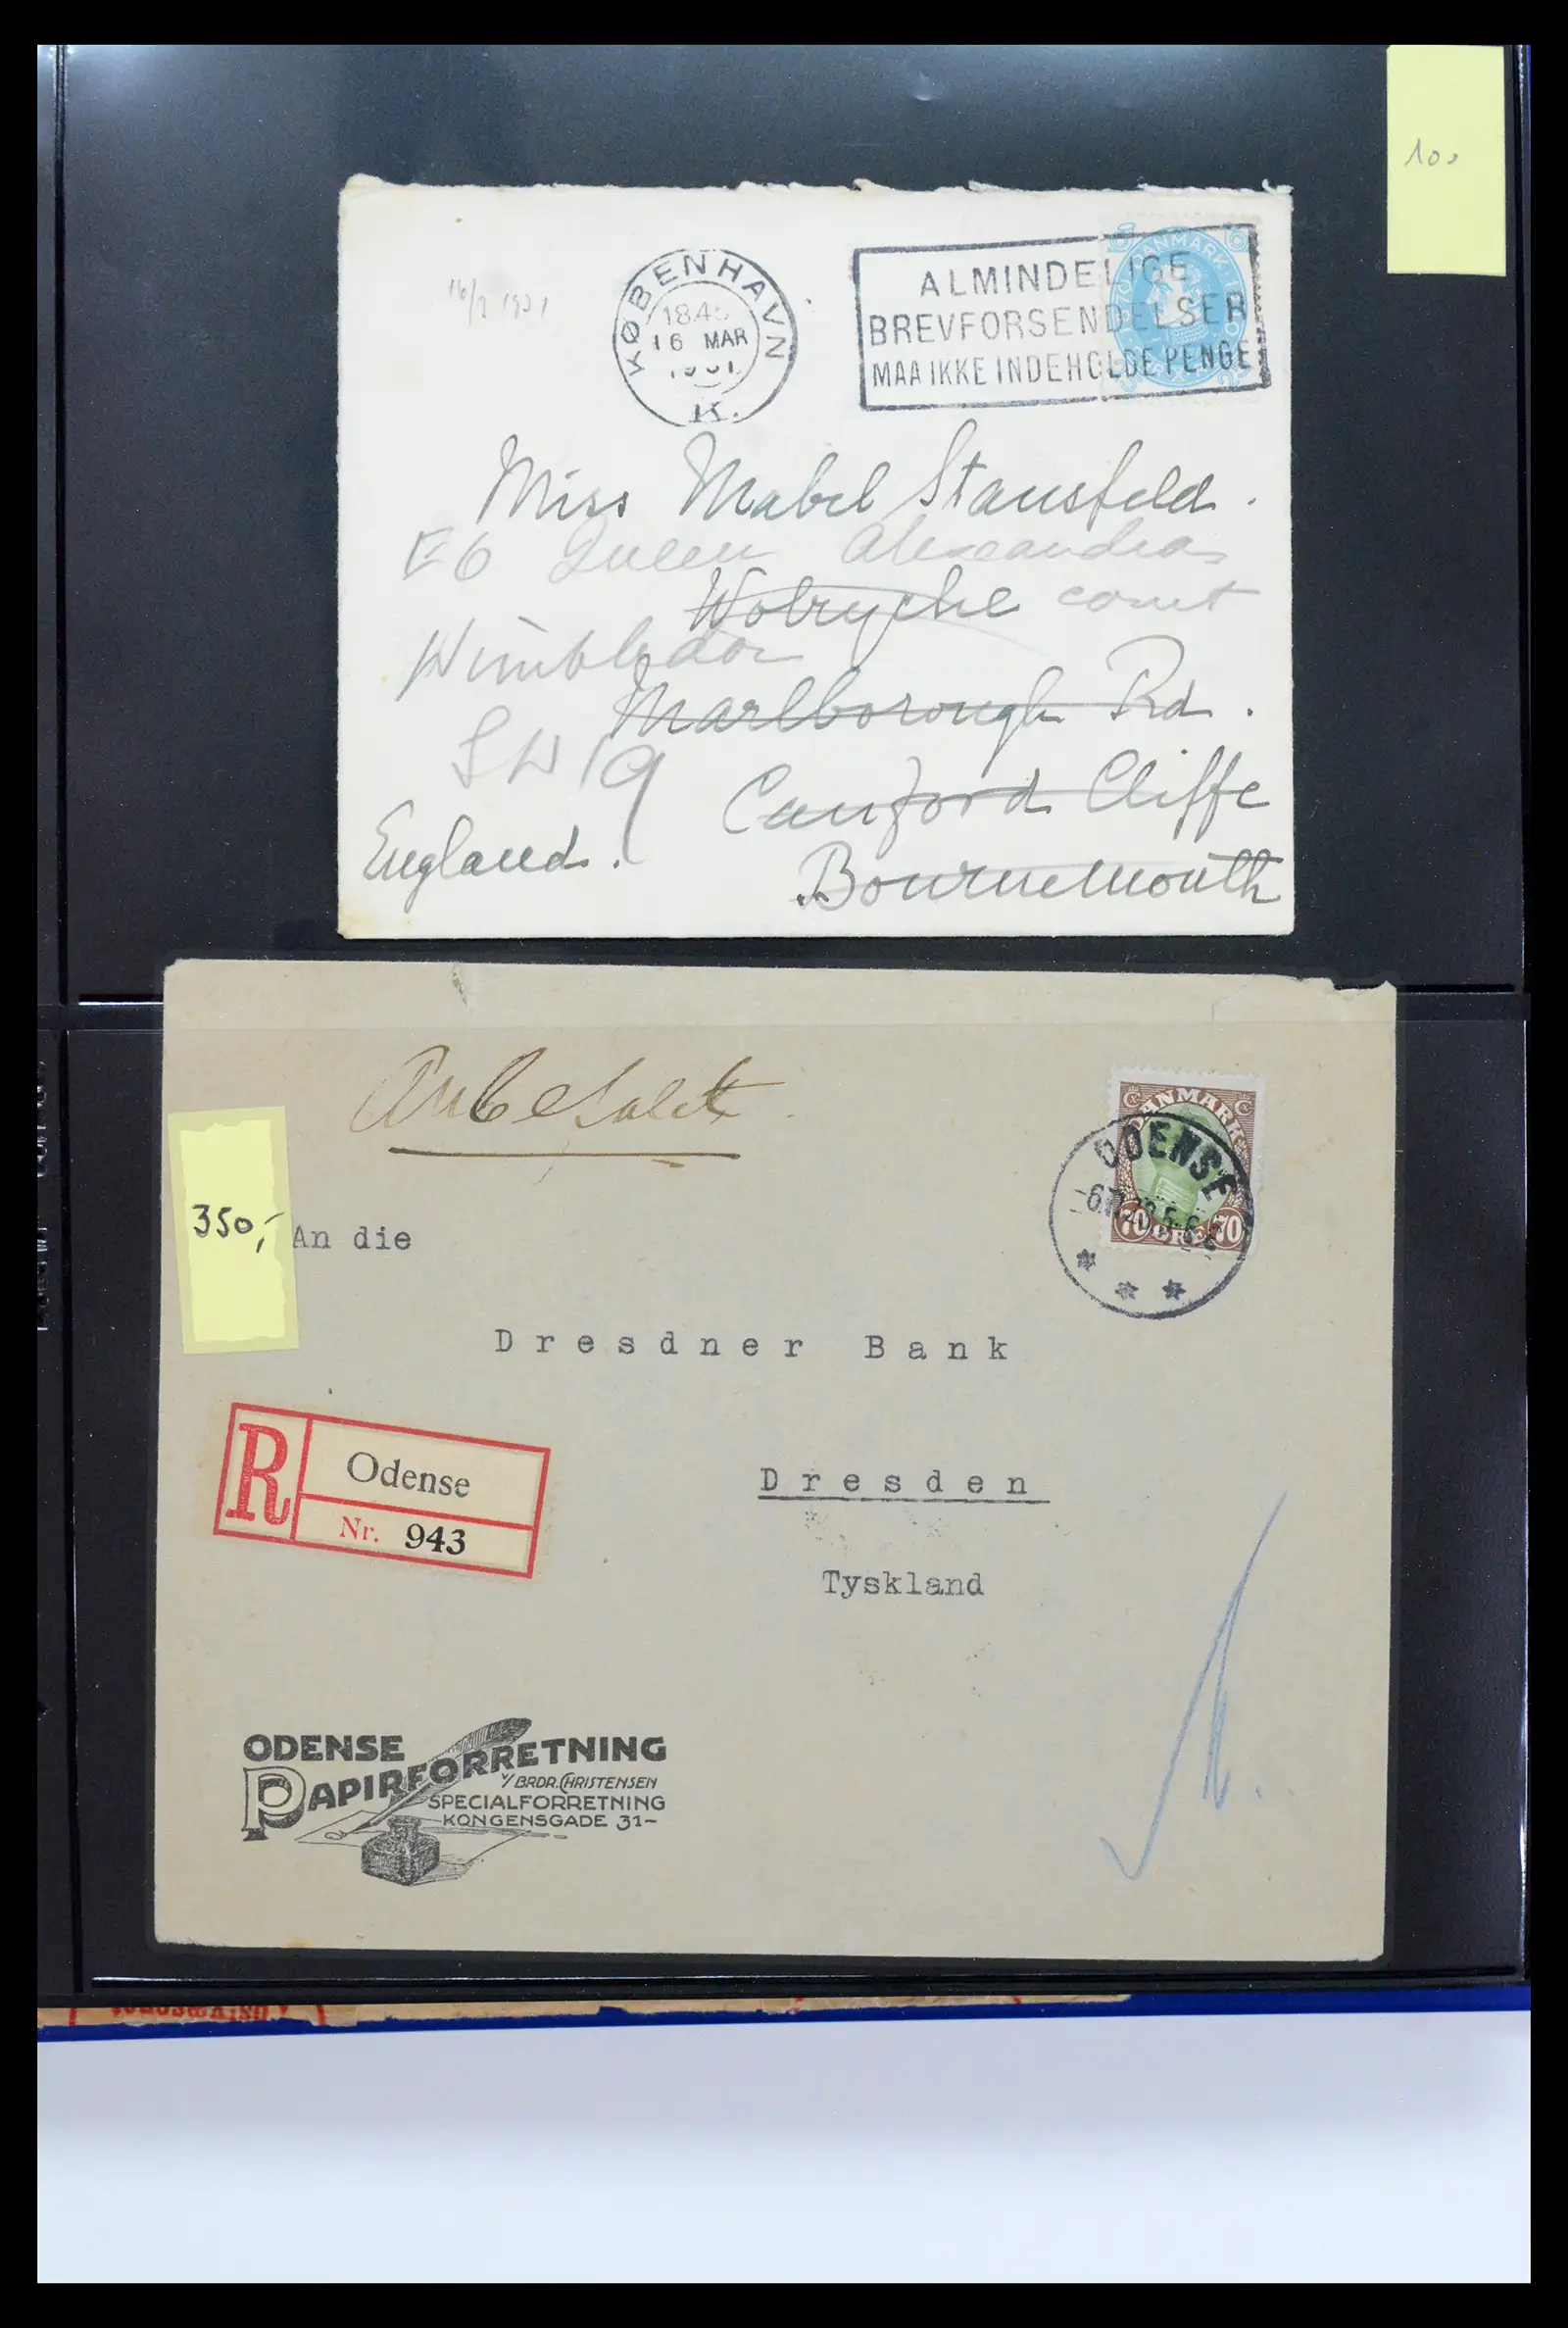 100
16/3 1931
KØBENHAVN
18.45
16 MAR
K.
ALMINDELIGE
BREVFORSENDELSER
MAA IKKE INDEHOLDE PENGE
DANMARK
Miss Mabel Stansfeld.
E6 Queen Alexandras
Wolryche court
Wimbledon
Marlborough Rd.
SW 19
Canford Cliffe
England.
Bournemouth
Anbefalet
DANMARK
70 ØRE 70
ODENSE
350,-
An die
Dresdner Bank
R
Odense
Nr. 943
Dresden
Tyskland
ODENSE
PAPIRFORRETNING
V/ BRDR. CHRISTENSEN
SPECIALFORRETNING
KONGENSGADE 31-